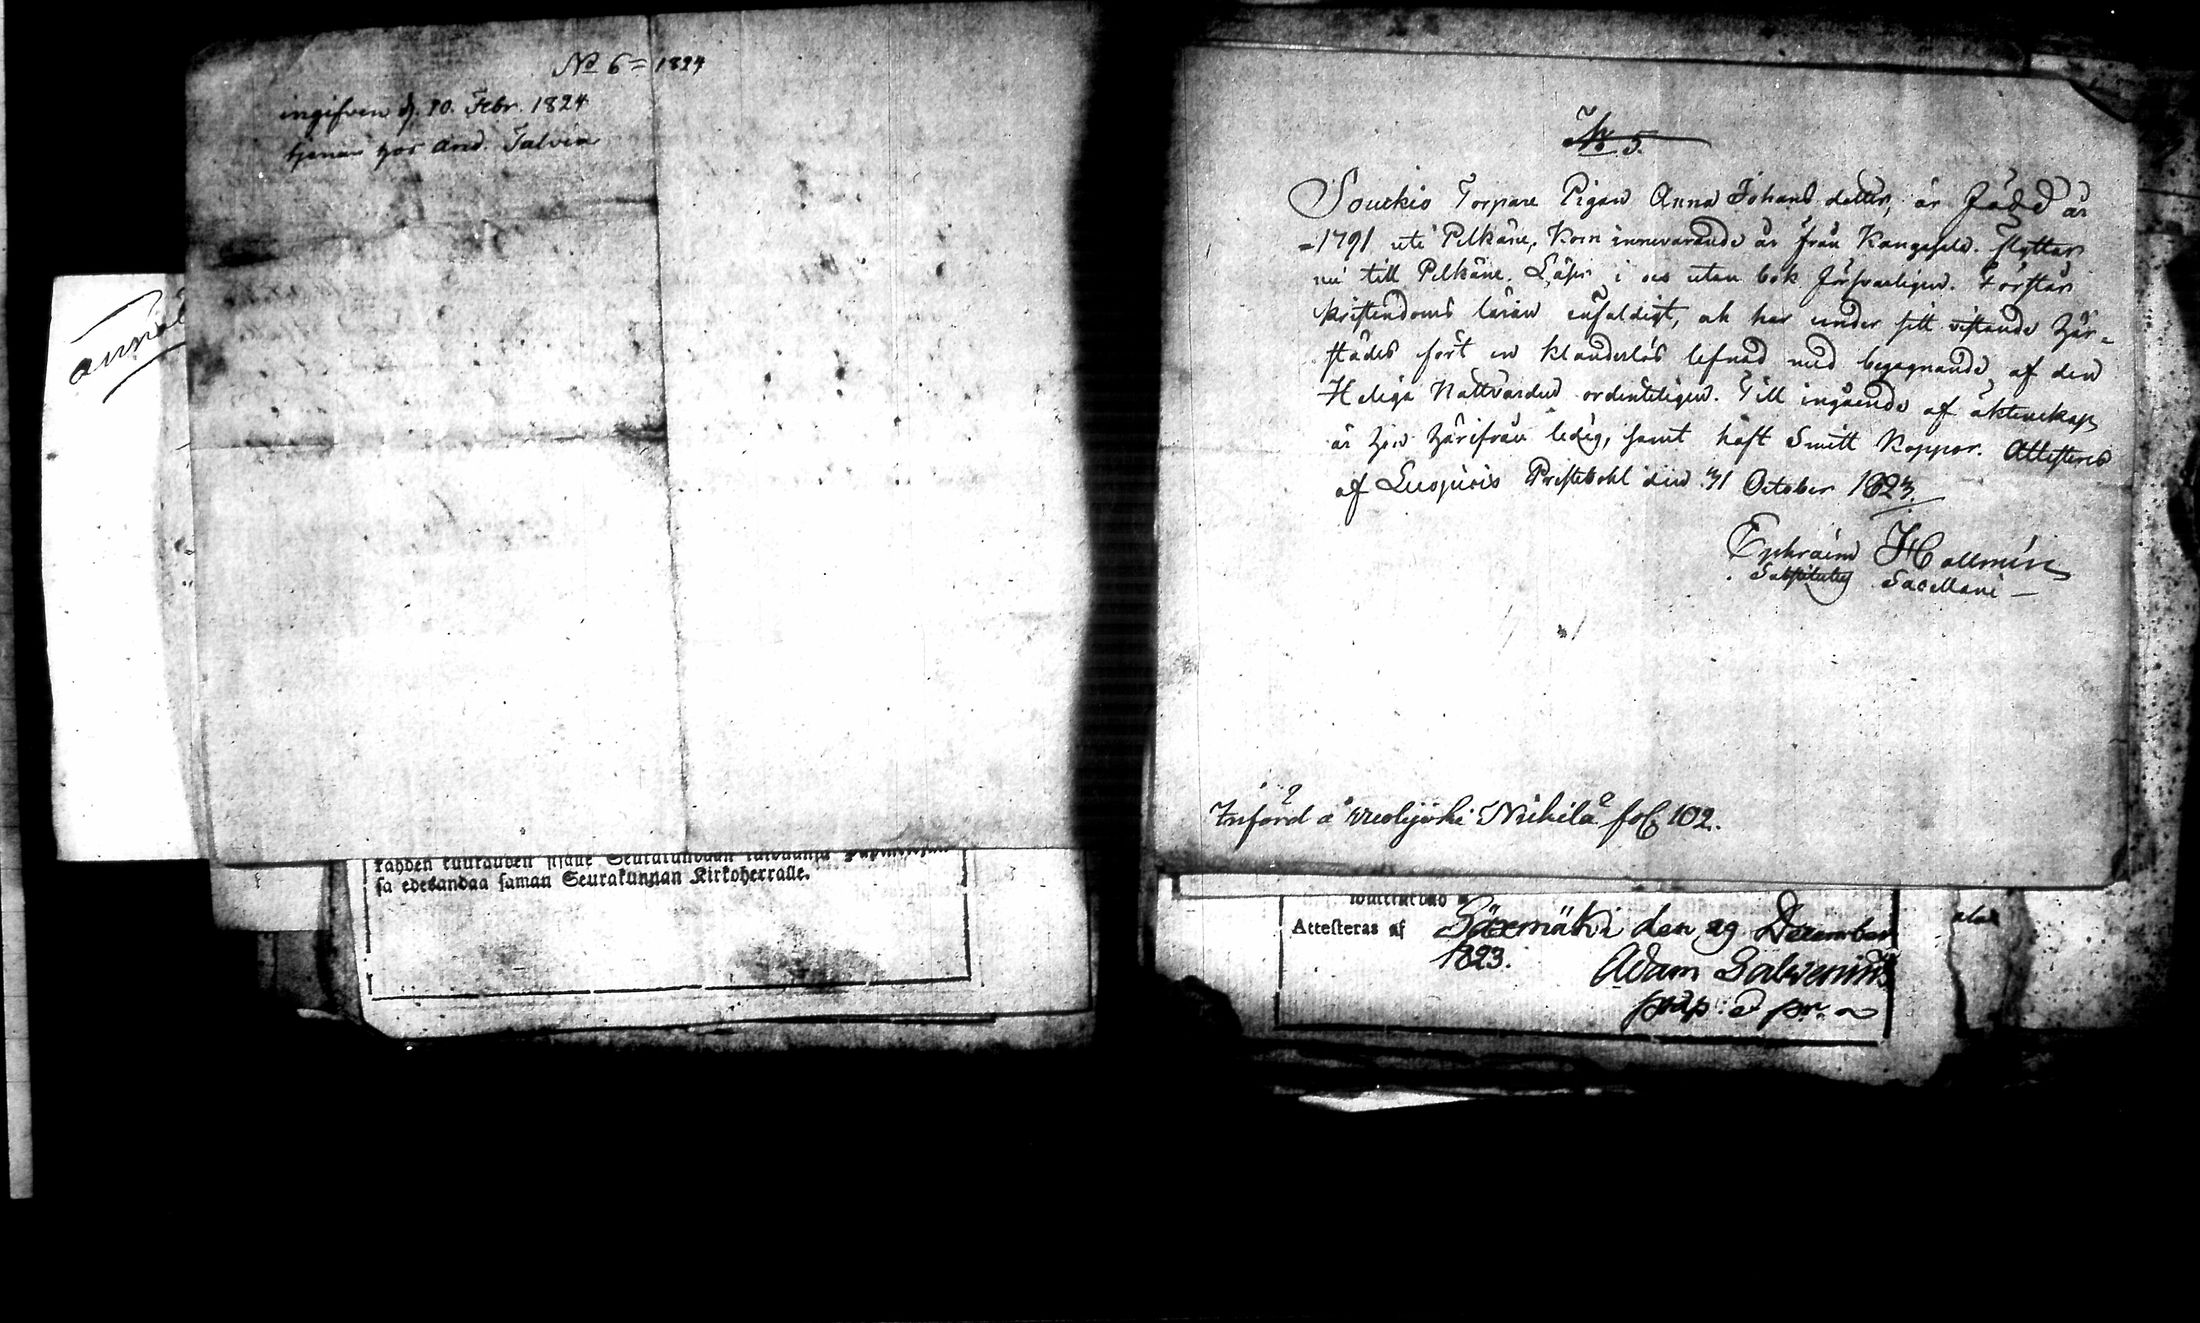 No 6 = 1824
ingifven d. 10. Febr. 1824
tjenar hos And. Talvia
anmäl
kahden kuukauden sisälle Seurakunnan
sa edesandaa saman Seurakunnan Kirkoherralle.
No 5.
Torpare Pigan Anna Johans dotter, är född år
1791 uti Pelkäne, Kom innevarande år från Kangasala. flyttar
nu till Pelkäne. Läser i och utan bok försvarligen. Förstår
kristendoms läran enfaldigt, ok har under sitt vistande här-
städes fört en klanderlös lefnad med begagnande af den
Heliga Nattvarden ordenteligen. Till ingående af äktenskap
är hon härifrån ledig, samt haft Smitt Koppor. Attesteras
af Luopiois Prestebohl den 31 October 1823.
Ephraim Hallmén
Substitutus Sacellani
Införd å Nikkilä fol. 102.
Attesteras af Säxmäki den 29 December
1823.
Adam Salvenius